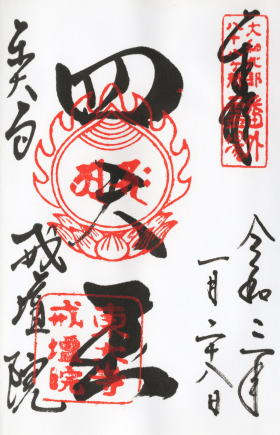 奉拝
大和北部
八十八ヶ所
番外
四天王
東大寺
戒壇院
令和二年
一月二十八日
東大寺
戒壇院